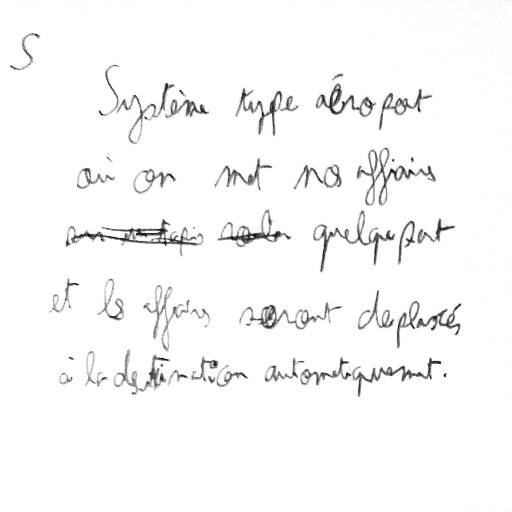 S
Système type aéroport
où on met nos affaires
sur un tapis selon quelque part
et les affaires seront déplacés
à la destination automatiquement.